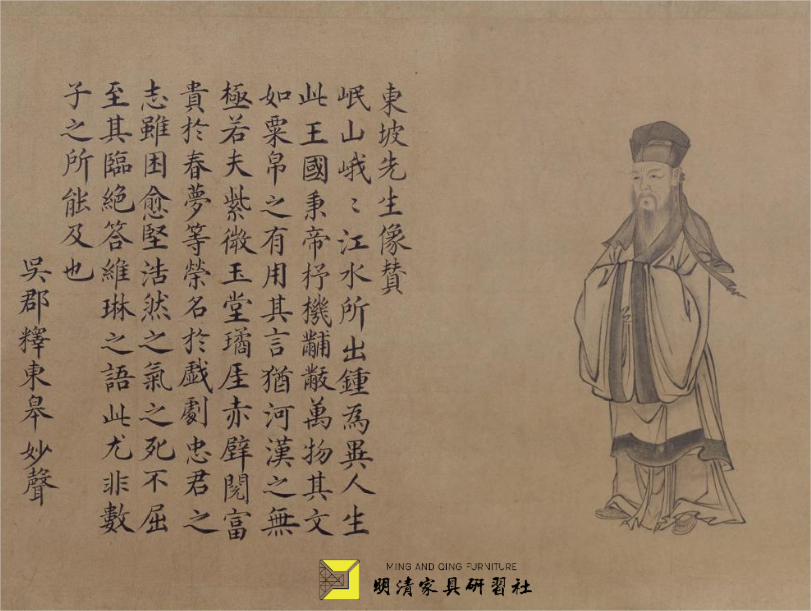 東坡先生像賛
岷山峨〻江水所出鍾為異人生
此王國秉帝杼機黼黻萬物其文
如粟帛之有用其言猶河漢之無
極若夫紫微玉堂璚厓赤壁閱富
貴於春夢等榮名於戲劇忠君之
志雖困愈堅浩然之氣之死不屈
至其臨絶答維琳之語此尤非數
子之所能及也
吳郡釋東皐妙聲
MING AND QING FURNITURE
明清家具研習社